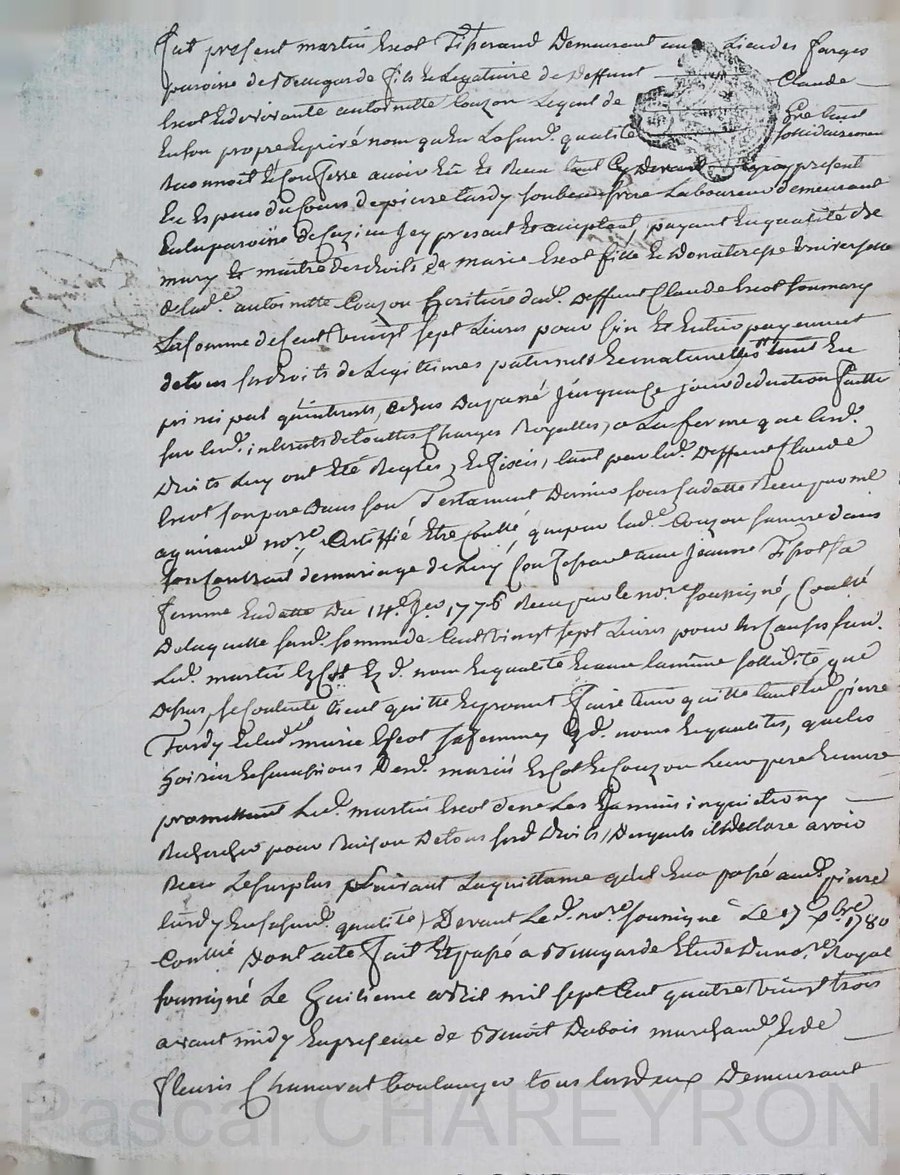 fut présent martin Escot Tisserand Demeurant au Lieu des farges
paroisse de St Maugarde fils et Legataire de Deffunt Claude
Escot et de vivante antoinette Couzon Lequel de Gré tant
En son propre et privé nom qu'en Lasusd. qualité sollidairement
Reconnoit et Confesse avoir Eu et Receu tant Cy Devant présent
En Especes du Cours de pierre tardy son beau frere Laboureur demeurant
En la paroisse de Cuzieu Icy present et acceptant, payant En qualité de
mary et maitre des droits de marie Escot fille et Donataire Universelle
de lad.e antoinette Couzon heritiere dud. Deffunt Claude Escot son mary
La somme de Cent vingt sept Livres pour fin et Entier payement
de tous ses droits de Legitimes paternels et maternelles tant En
principal qu'interets, echus Du passé jusqu'a ce jour deduction faitte
sur lesd. interets de touttes Charges Royalles, a La forme que lesd.
Droits Luy ont Eté Reglés, et fixés, tant par led. Deffunt Claude
Escot son pere Dans son Testament Dernier sous sa datte Receu par me
nore. Certiffié Etre Conllé, que par lad.e Couzon sa mere dans
son Contract de mariage de Luy Confessant avec jeanne Tissot sa
femme En datte Du 14e. Jer 1776 Receu par le nore soussigné, Conllé
De laquelle susd. somme de Cent vingt sept Livres pour les Causes susd.
Led. martin Escot Ezd. nom et qualité et avec la même sollidité, que
Dessus, se Contente tient quitte et promet faire tenir quitte tant led. pierre
Tardy et lad. marie Escot sa femme, Ezd. noms et qualités, que les
hoiries et successions Desd. mariés Escot et Couzon Leur pere et mere
promettant Led. martin Escot de ne Les jamais inquieter ny
Rechercher pour Raison De tous sesd. Droits, Desquels il Declare avoir
Receu Le surplus suivant La quittance qu'il En a passé aud. pierre
tardy En sa susd. qualité, Devant Led. nore. soussigné Le 17 xbre. 1780
Conllé Dont acte fait et passé a St Maugarde Etude Du nore. Royal
soussigné Le huitieme avril mil sept Cent quatre vingt trois
avant midy En presence de Benoit Dubois marchand, et de
fleuris Chanavat boulanger tous Lesdeux Demeurant
Pascal CHAREYRON